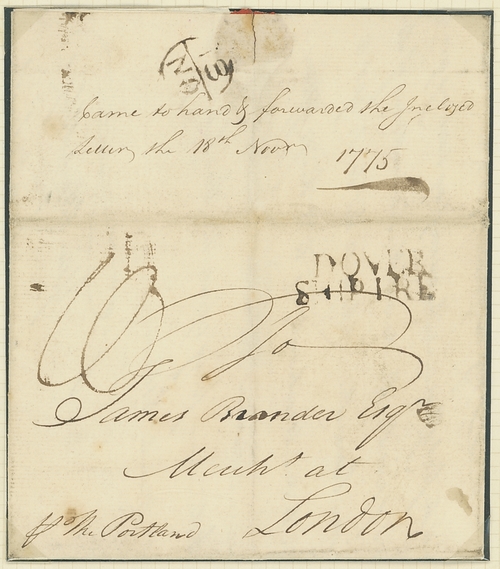 NO
18
Came to hand & forwarded the Inclosed
Letter, the 18th Novr 1775
DOVER
SHIP LRE
To
James Brander Esqr
Mercht at
London
pr The Portland